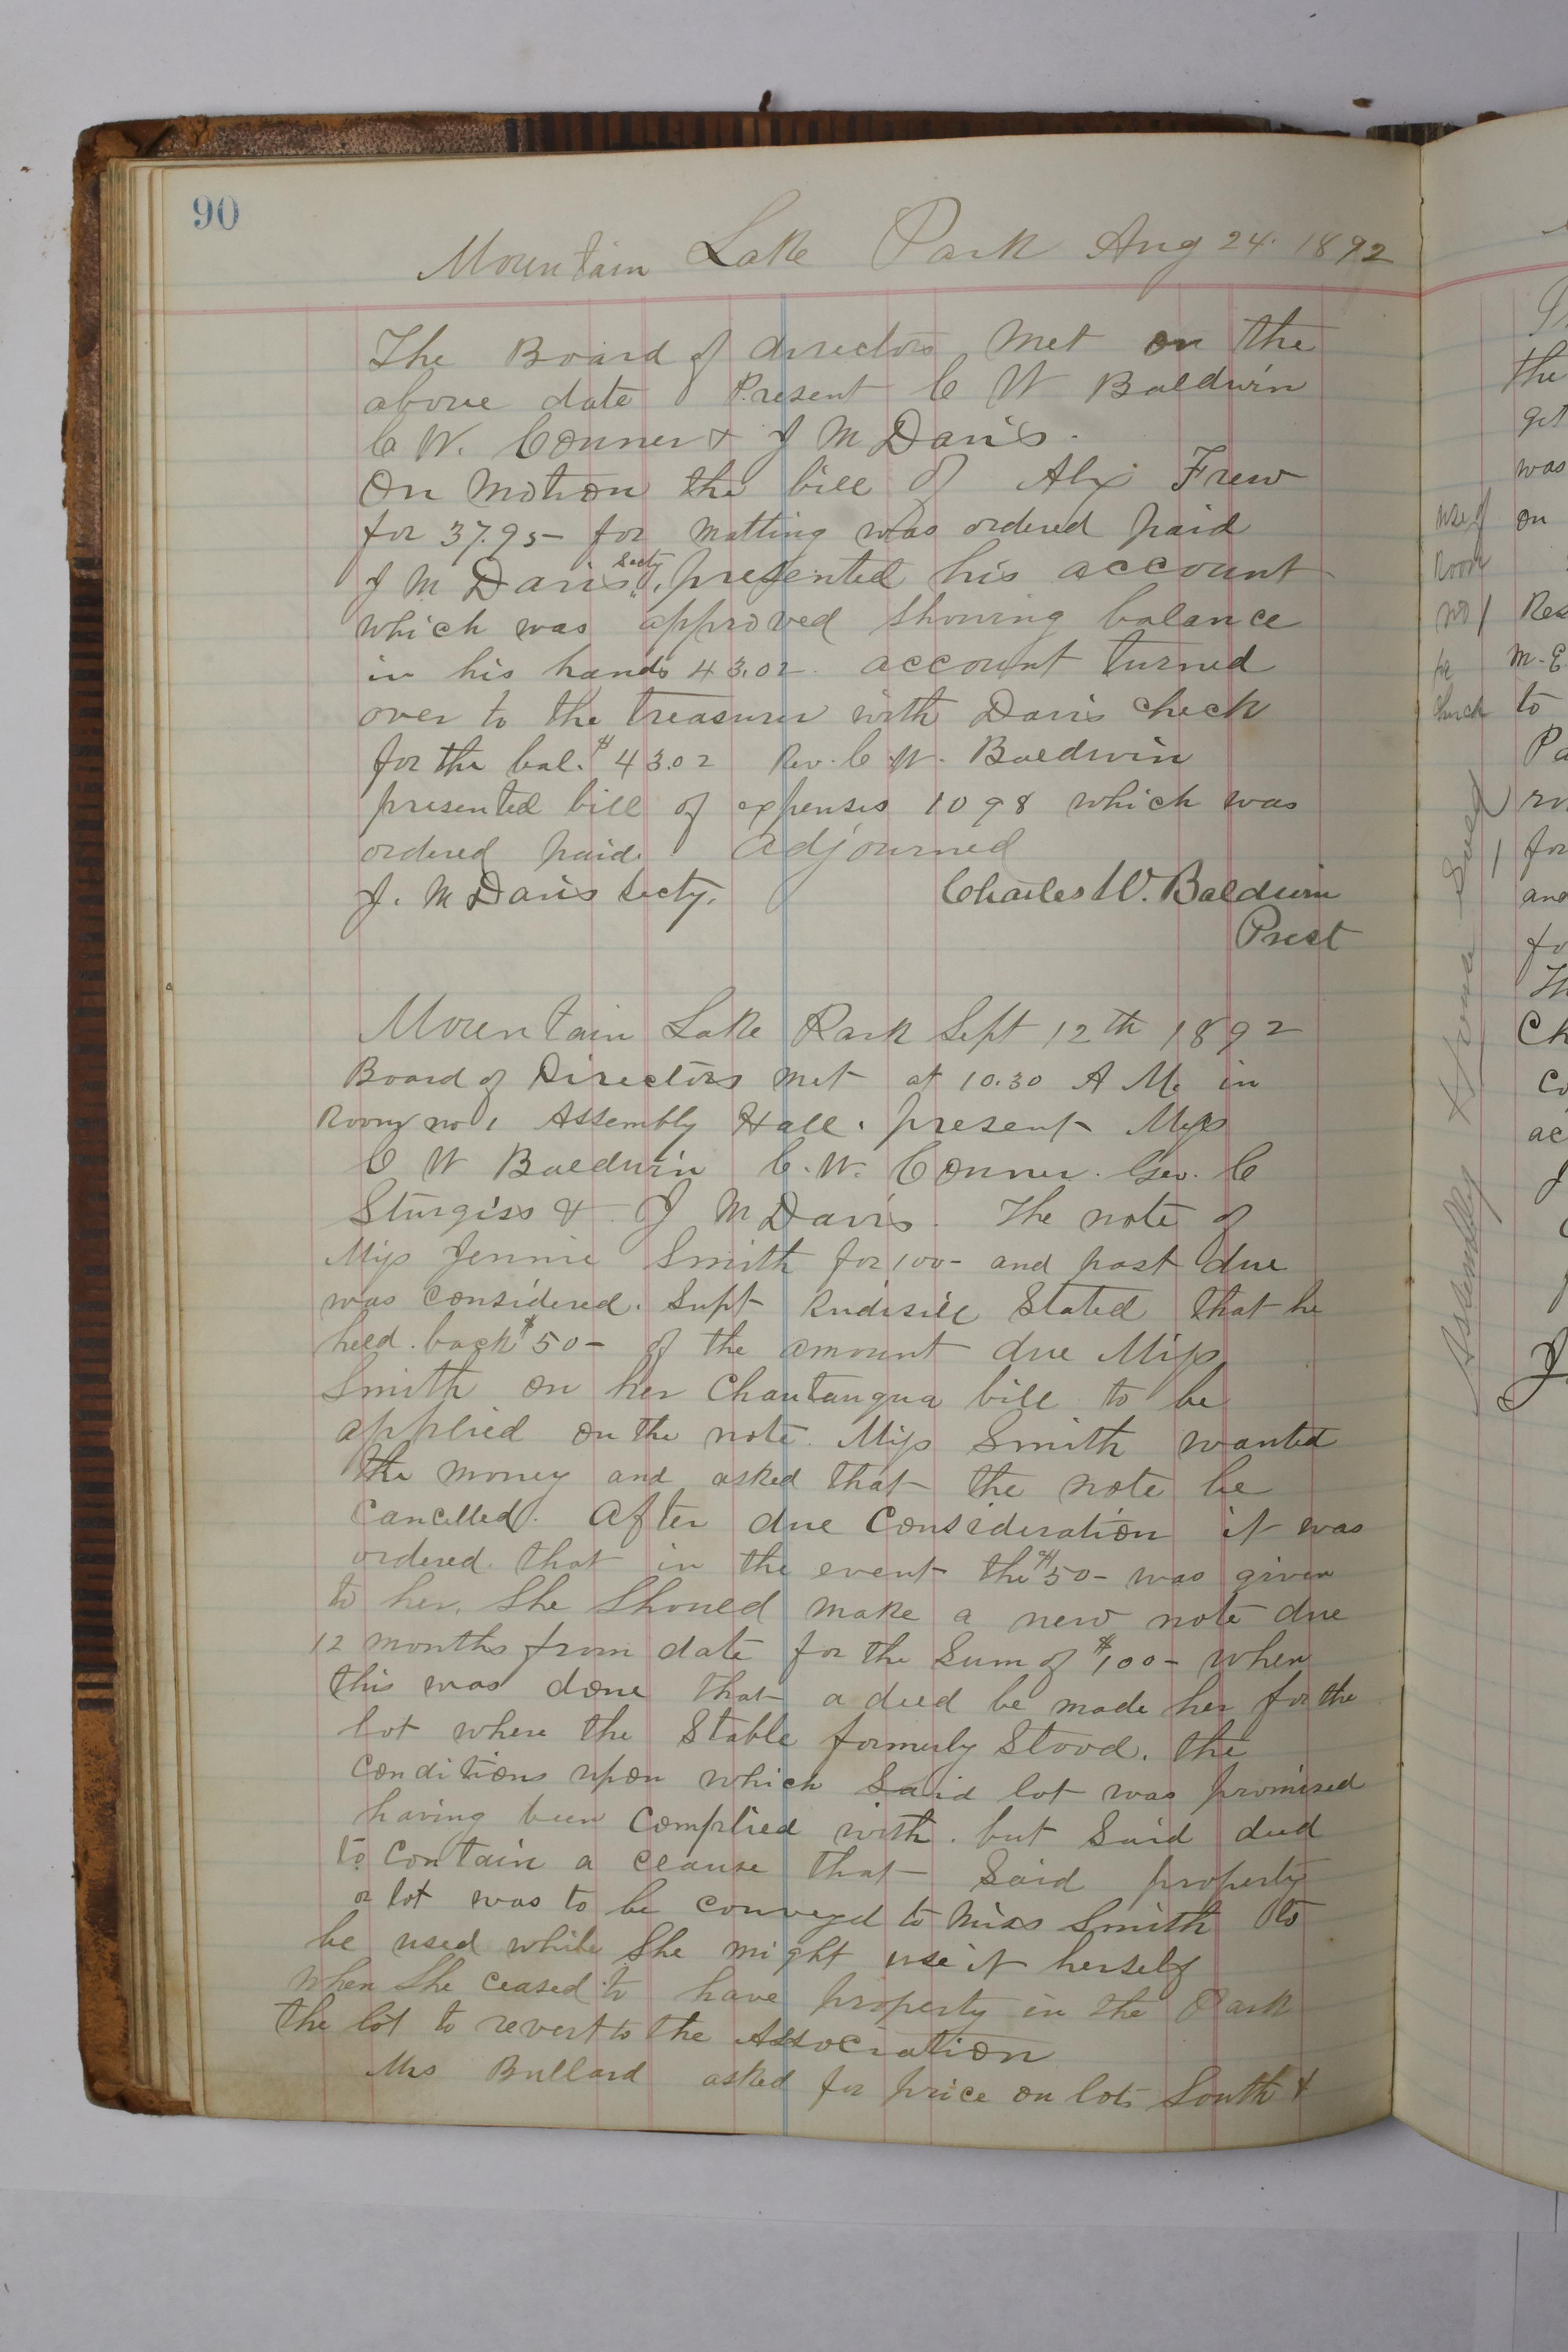 90
Mountain Lake Park Aug 24. 1892
The Board of directors Met on the
above date Present C W Baldwin
C W. Conner & J M Davis.
On Motion the bill of Alex Frew
for 37.95- for matting was ordered paid
J M Davis Secty. presented his account
which was approved showing balance
in his hands 43.02 account turned
over to the treasurer with Davis check
for the bal. $43.02 Rev. C. W. Baldwin
presented bill of expenses 1098 which was
ordered paid. adjourned
J. M Davis Secty. Charles W. Baldwin
Prest
Mountain Lake Park Sept 12th 1892
Board of Directors met at 10.30 A M. in
Room no 1 Assembly Hall. present Mess
C W Baldwin C. W. Conner. Geo. C
Sturgiss & J M Davis. The note of
Miss Jennie Smith for 100- and past due
was considered. Supt Rudisill Stated that he
held back $50- of the amount due Miss
Smith on her Chautauqua bill to be
applied on the note. Miss Smith wanted
the money and asked that the note be
cancelled. After due consideration it was
ordered that in the event the $50- was given
to her, she should make a new note due
12 months from date for the Sum of $100- when
this was done that a deed be made her for the
lot where the Stable formerly Stood. the
conditions upon which Said lot was promised
having been complied with. but Said deed
to contain a clause that Said property
or lot was to be conveyed to Miss Smith to
be used while She might use it herself
when She ceased to have property in the Park
the lot to revert to the Association
Mrs Bullard asked for price on lots South &
use of
Room
no 1
for
Church
Assembly
the
get
was
on
Res
M. E
to
Pa
for
and